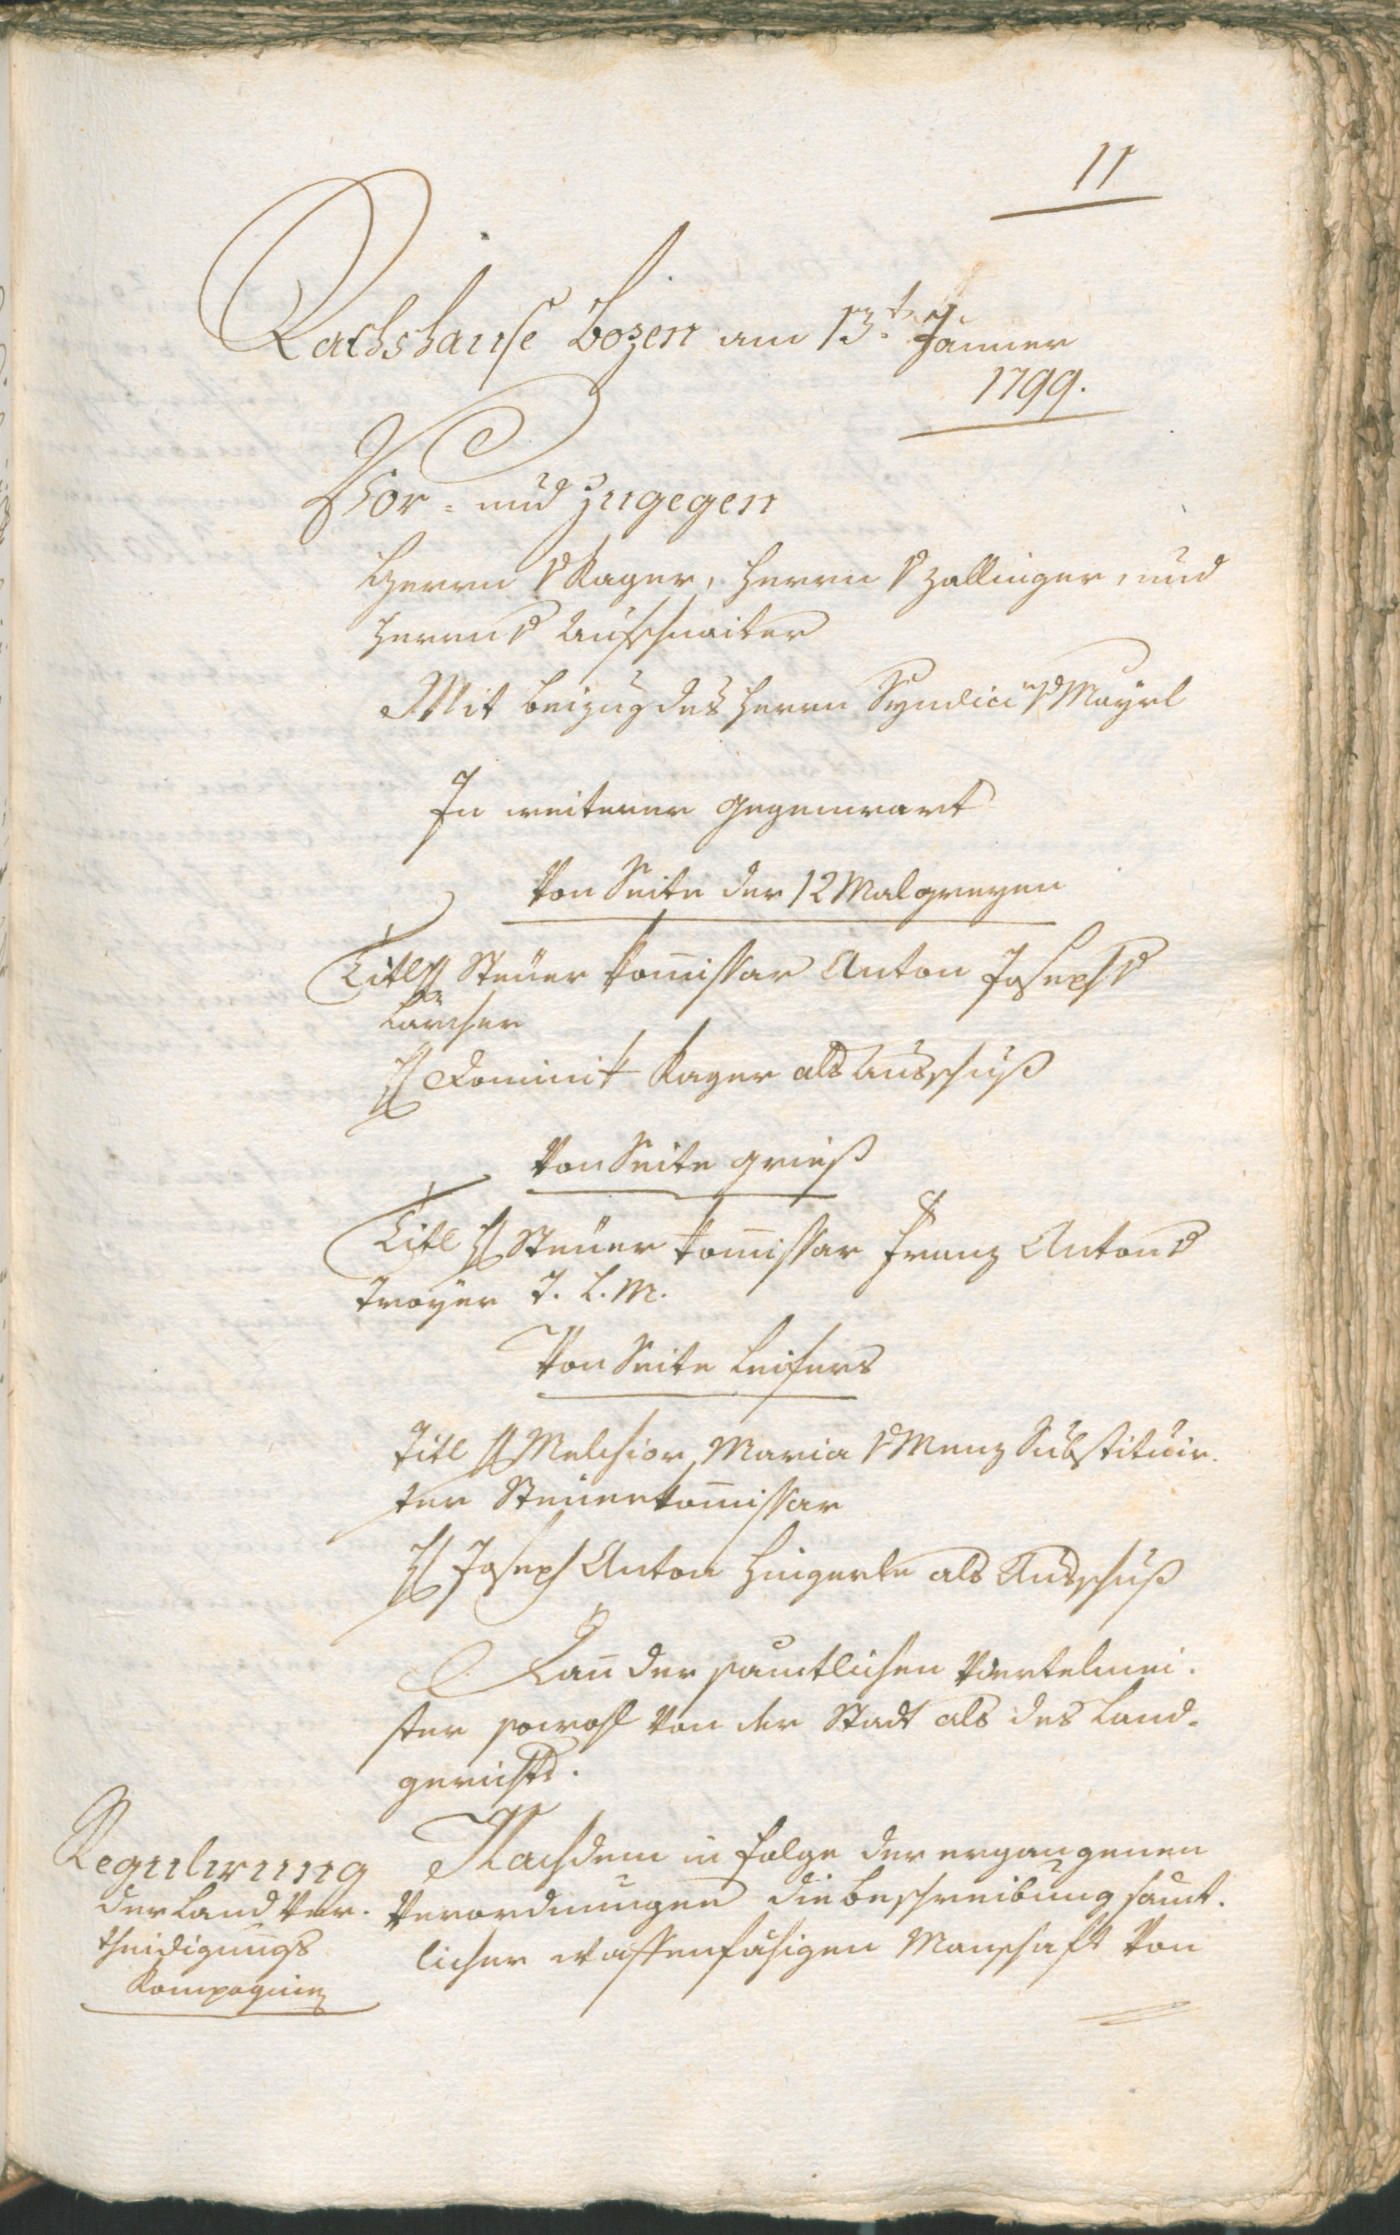 11
Rathshause Bozen am 13.t Jänner
1799.
Vor- und zugegen
Herrn v Kager, Herrn v Zallinger, und
Herrn v Aufschnaiter
Mit Beizug des Herrn Syndici v Mayrl
In weiterer Gegenwart
Von Seite der 12 Malgreyen
Titl H Steuer Kom̅issar Anton Joseph v
Larcher
H Dominik Kager als Ausschuß
Von Seite Grieß
Titl H Steuer Kom̅issar Franz Anton v
Troyer J. L. M.
Von Seite Leifers
Titl H Melchior Maria v Menz Substituir-
ter Steuerkom̅issar
H Joseph Anton Hingerle als Ausschuß
Dan̅ der sämtlichen Viertelmei-
ster sowohl von der Stadt als des Land-
gerichts.
Regulirung
der Land Ver-
theidigungs
Kompagnien
Nachdem in Folge der ergangenen
Verordnungen die Beschreibung sämt-
licher waffenfähigen Manschaft von